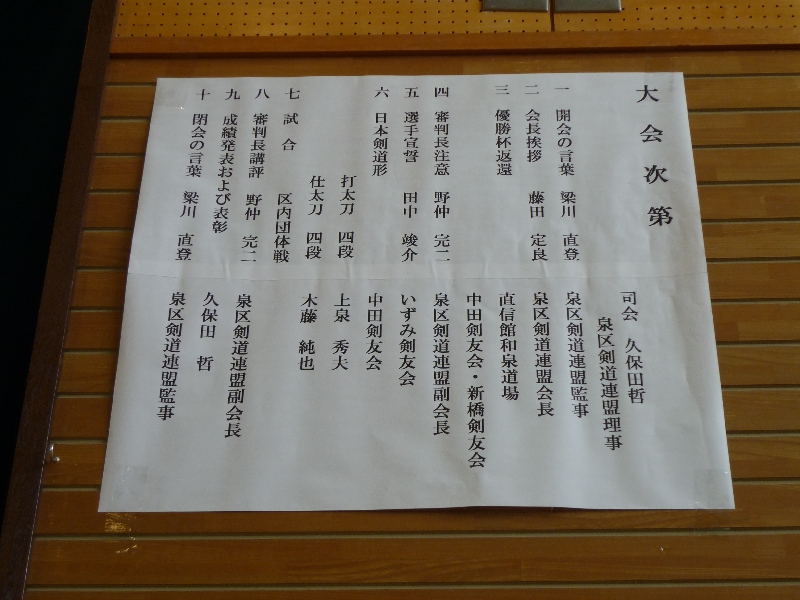 大会次第
司会 久保田哲
泉区剣道連盟理事
一 開会の言葉 梁川 直登 泉区剣道連盟監事
二 会長挨拶 藤田 定良 泉区剣道連盟会長
三 優勝杯返還 直信館和泉道場
中田剣友会・新橋剣友会
四 審判長注意 野仲 完二 泉区剣道連盟副会長
五 選手宣誓 田中 竣介 いずみ剣友会
六 日本剣道形 中田剣友会
打太刀 四段 上泉 秀夫
仕太刀 四段 木藤 純也
七 試合 区内団体戦
八 審判長講評 野仲 完二 泉区剣道連盟副会長
九 成績発表および表彰 久保田 哲
十 閉会の言葉 梁川 直登 泉区剣道連盟監事